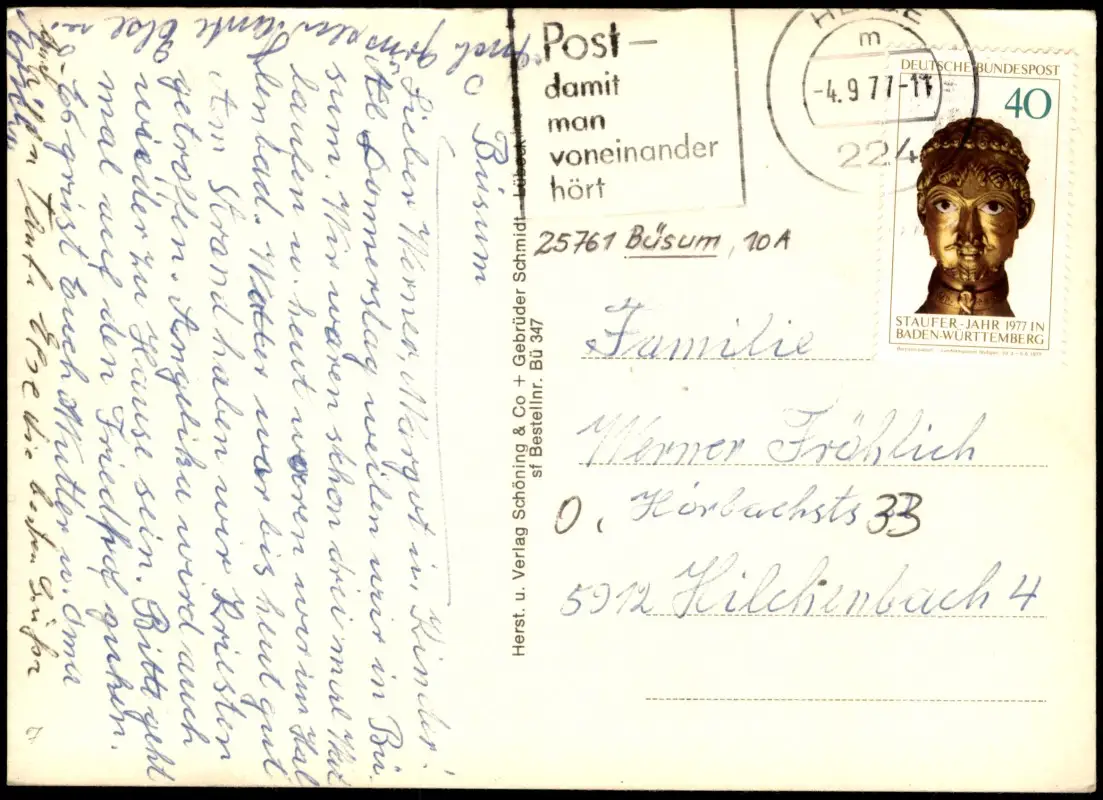 Büsum
Lieber Werner, Margret u. Kinder!
Ab Donnerstag weilen wir in Bü-
sum. Wir waren schon drei mal Wat
laufen u. heut waren wir im Hal
lenbad. Wetter war bis heut gut
Am Strand haben wir Kristen
getroffen. Angelika wird auch
wieder zu Hause sein. Bitte geht
mal auf den Friedhof gucken.
Es grüßt Euch Mutter u. Oma
Tante Else die besten Grüße
Post-
damit
man
voneinander
hört
HEIDE
m
-4.9.77-11
224
DEUTSCHE BUNDESPOST
40
STAUFER-JAHR 1977 IN
BADEN-WÜRTTEMBERG
25761 Büsum, 10A
Herst. u. Verlag Schöning & Co + Gebrüder Schmidt - Lübeck
sf BestellNr. Bü 347
Familie
Werner Fröhlich
Hörbachsts 33
5912 Hilchenbach 4